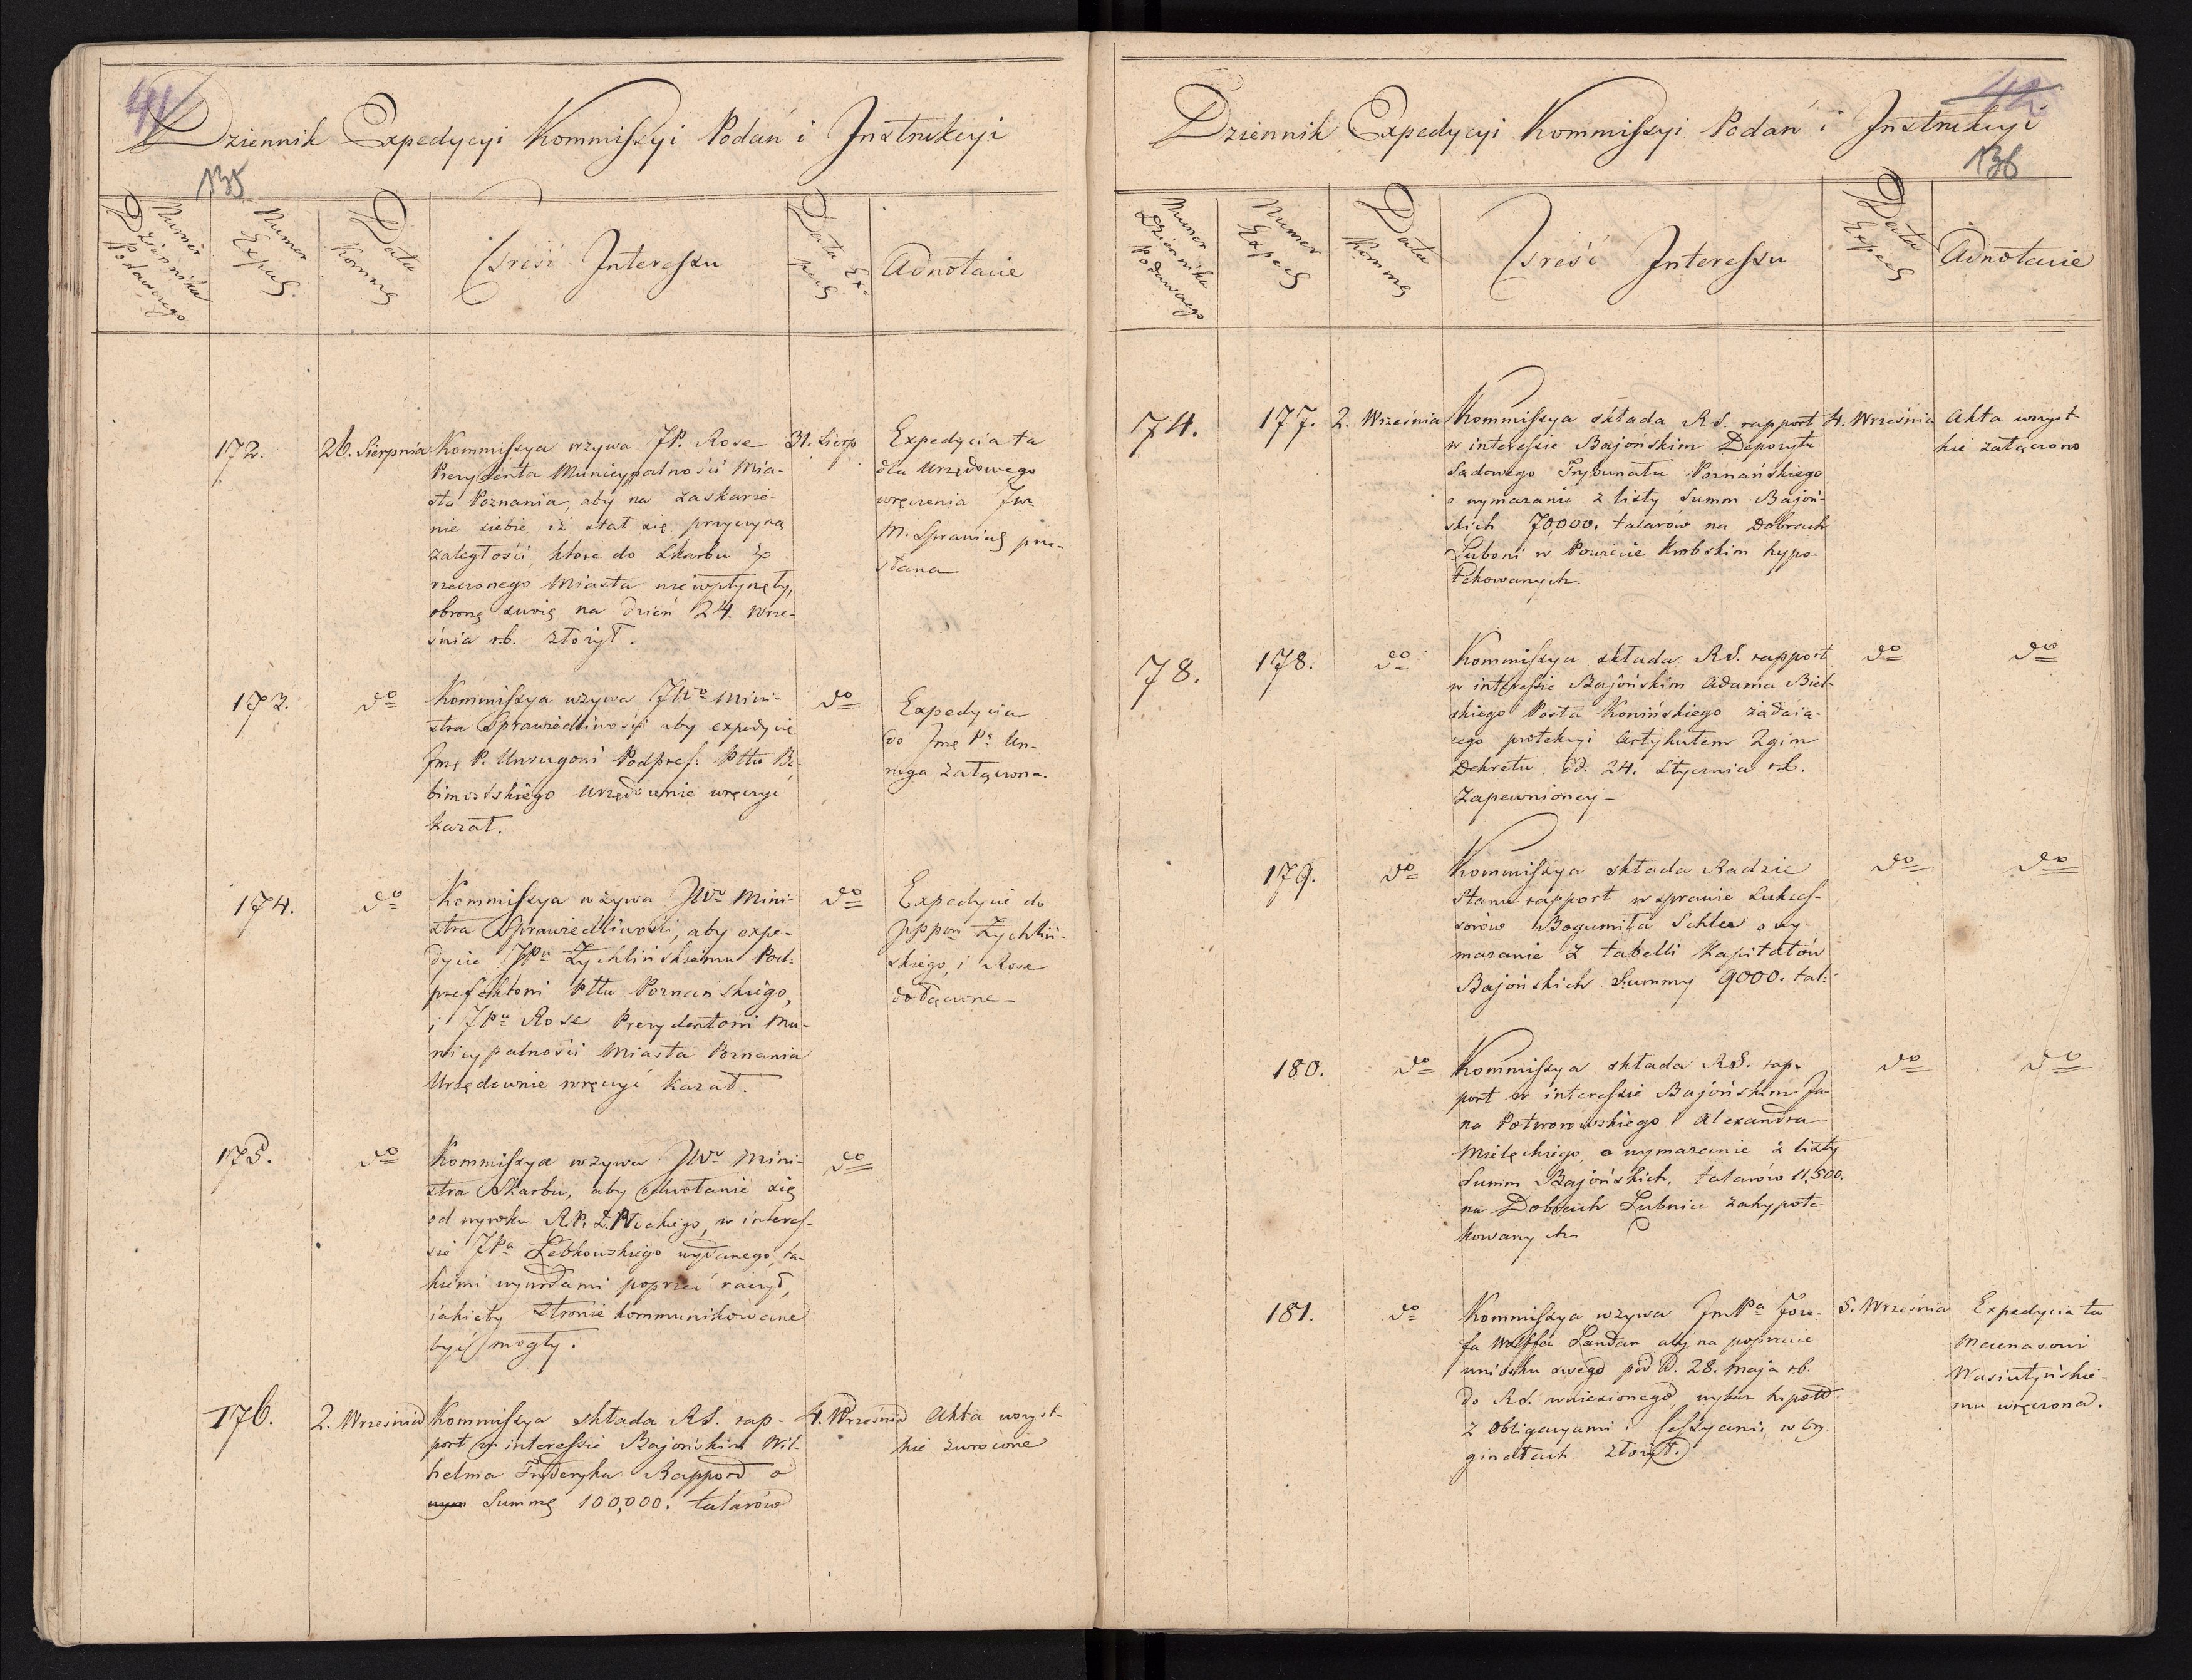 41
Dziennik Expedycyi Kommissyi Podań i Instrukcyi
135
Numer Dziennika Podawczego
Numer Exped
Data Kommis
Treść Interessu
Data Exped
Adnotacie
172.
26. Sierpnia
Kommissya wzywa JP. Rose
Prezydenta Municypalności Mia-
sta Poznania, aby na zaskarże-
nie siebie, iż stał się przyczyną
zaległości, ktore do Skarbu z
rzeczonego Miasta niewpłynęły,
obronę swoię na dzień 24. Wrze-
śnia r.b. złożył.
31. Sierp
Expedycia ta
dla Urzędowego
wręczenia JWu
M. Sprawied prze-
słana
173.
do
Kommissya wzywa JWo Mini-
stra Sprawiedliwości aby expedycię
Jmę P. Unrugowi Podpref: Pttu Ba-
bimostskiego Urzędownie wręczyć
kazał.
do
Expedycia
do Jmę Pa Un-
ruga załączona.
174.
do
Kommissya wzywa JWo Mini-
stra Sprawiedliwości, aby expe-
dycie JPu Żychlińskiemu Pod-
prefektowi Pttu Poznańskiego,
i JPu Rose Prezydentowi Mu-
nicypalności Miasta Poznania
Urzędownie wręczyć kazał.
do
Expedycie do
JPpow Żychliń-
skiego, i Rose
dołączone -
175.
do
Kommissya wzywa JWo Mini-
stra Skarbu, aby odwołanie się
od wyroku R.P. D. Płockiego, w interes-
sie JPa Łebkowskiego wydanego, ta-
kiemi wywodami poprzeć raczył,
iakieby Stronie kommunikowane
być mogły.
do
176.
2. Września
Kommissya składa RS. rap-
port w interessie Bajońskim Wil-
helma Fryderyka Rappord o
Summę 100,000. talarów
4. Września
Akta wszyst-
kie zwrócone
42
Dziennik Expedycyi Kommissyi Podań i Instrukcyi
136
Numer Dziennika Podawczego
Numer Exped
Data Kommis
Treść Interessu
Data Exped
Adnotacie
74.
177.
2. Września
Kommissya składa RS. rapport
w interessie Bajońskim Depozytu
Sądowego Trybunału Poznańskiego
o wymazanie z listy Summ Bajoń-
skich 70,000. talarów na Dobrach
Luboni w Powiecie Krobskim hypo-
tekowanych.
4. Września
Akta wszyst
kie załączono
78.
178.
do
Kommissya składa RS. rapport
w interessie Bajońskim Adama Biel-
skiego Posła Konińskiego żądaią-
cego protekcyi Artykułem 2gim
Dekretu dd. 24. Stycznia r.b.
Zapewnioney -
do
do
179.
do
Kommissya składa Radzie
Stanu rapport w sprawie Sukces-
sorów Bogumiła Schlee o wy-
mazanie z tabelli Kapitałów
Bajońskich Summy 9000. tal:
do
do
180.
do
Kommissya składa RS. rap-
port w interessie Bajońskim Ja-
na Potworowskiego i Alexandra
Mielęckiego, o wymazanie z listy
Summ Bajońskich, talarów 11,500.
na Dobrach Lubnice zahypote-
kowanych
do
do
181.
do
Kommissya wzywa JmPa Joze-
fa Wolffa Landau aby na poparcie
wniosku swego pod d. 28. Maja r.b.
do RS. wniesionego, wykaz hipoted
z Obligacyami i Cessyami, w ory-
ginałach złożył.
5. Września
Expedycia ta
Mecenasowi
Wasiutyńskie-
mu wręczona.